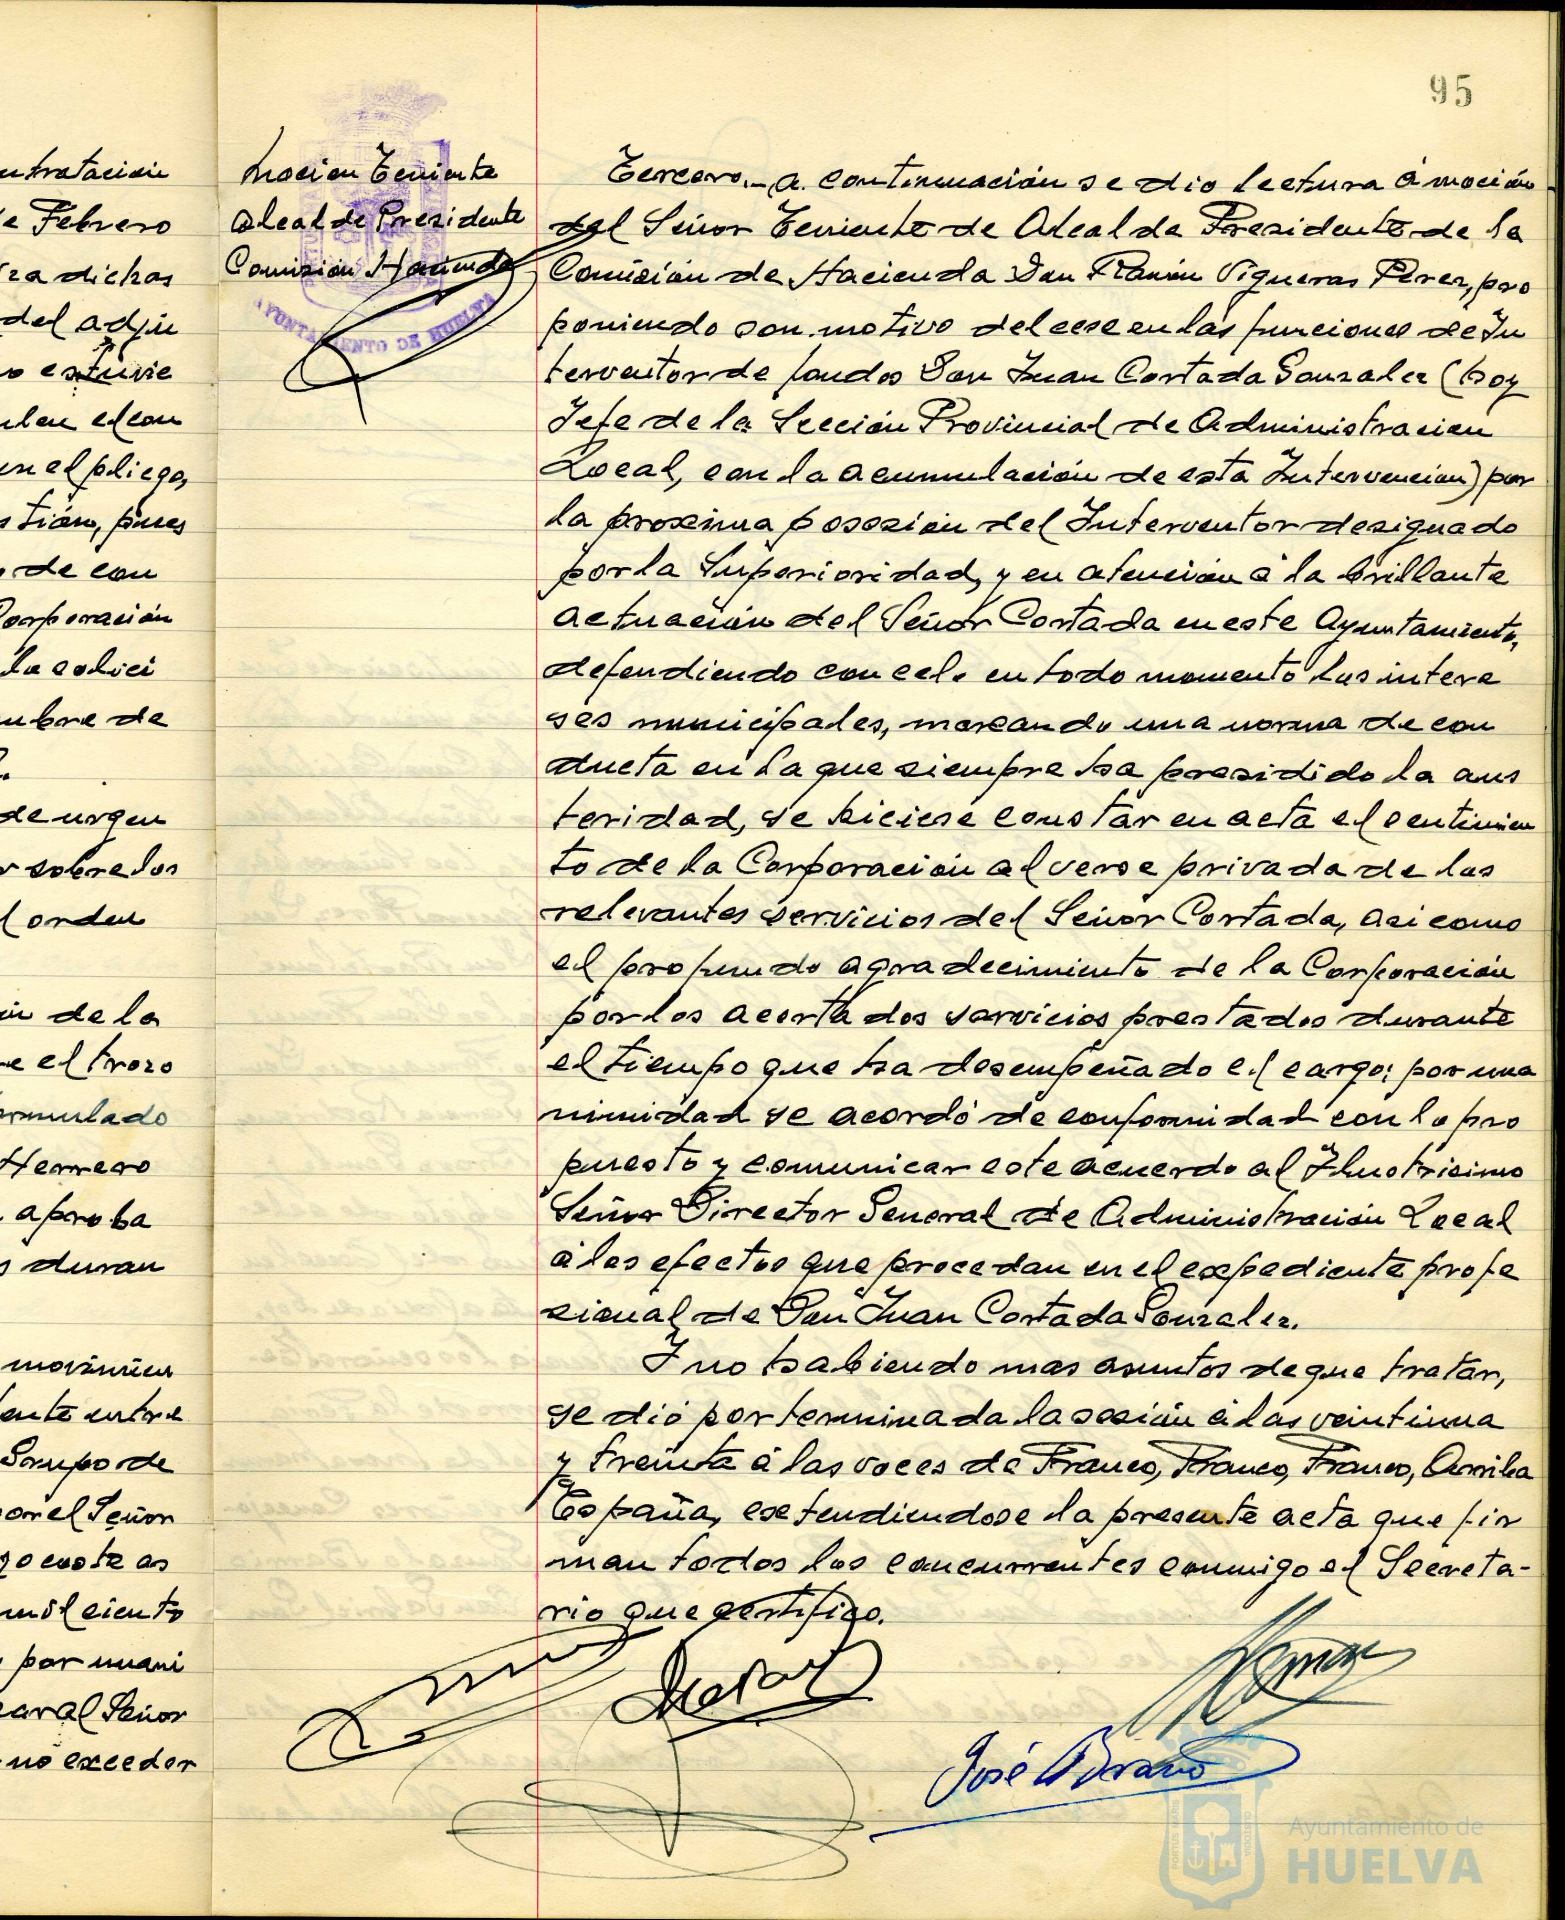 95
ntratación
e Febrero
ra dichas
del adju
o estuvie
ulen el con
en el pliego,
stión, pues
de con
Corporación
la solici
mbre de
de urgen
r sobre los
l orden
ón de la
e el trozo
ormulado
Herrero
aproba
s duran
movimien
ente entre
Grupo de
por el Señor
go coste as
mil ciento
por unani
car al Señor
no exceder
Moción Teniente
Alcalde Presidente
Comisión Hacienda
AYUNTAMIENTO DE HUELVA
Tercero.- A continuación se dio lectura á moción
del Señor Teniente de Alcalde Presidente de la
Comisión de Hacienda Don Ramón Vigueras Perez, pro
poniendo con motivo del cese en las funciones de In
terventor de fondos Don Juan Cortada Gonzalez (hoy
Jefe de la Sección Provincial de Administracion
Local, con la acumulación de esta Intervencion) por
la proxima posesión del Interventor designado
por la Superioridad, y en atención á la brillante
actuación del Señor Cortada en este Ayuntamiento,
defendiendo con celo en todo momento los intere
ses municipales, marcando una norma de con
ducta en la que siempre ha presidido la aus
teridad, se hiciese constar en acta el sentimien
to de la Corporación al verse privada de los
relevantes servicios del Señor Cortada, asi como
el profundo agradecimiento de la Corporación
por los acertados servicios prestados durante
el tiempo que ha desempeñado el cargo; por una
nimidad se acordó de conformidad con lo pro
puesto y comunicar este acuerdo al Ilustrisimo
Señor Director General de Administración Local
á los efectos que procedan en el expediente profe
sional de Don Juan Cortada Gonzalez.
Y no habiendo mas asuntos de que tratar,
se dió por terminada la sesión á las veintiuna
y treinta á las voces de Franco, Franco, Franco, Arriba
España, extendiendose la presente acta que fir
man todos los concurrentes conmigo el Secreta-
rio que certifico.
José
Ayuntamiento de
HUELVA